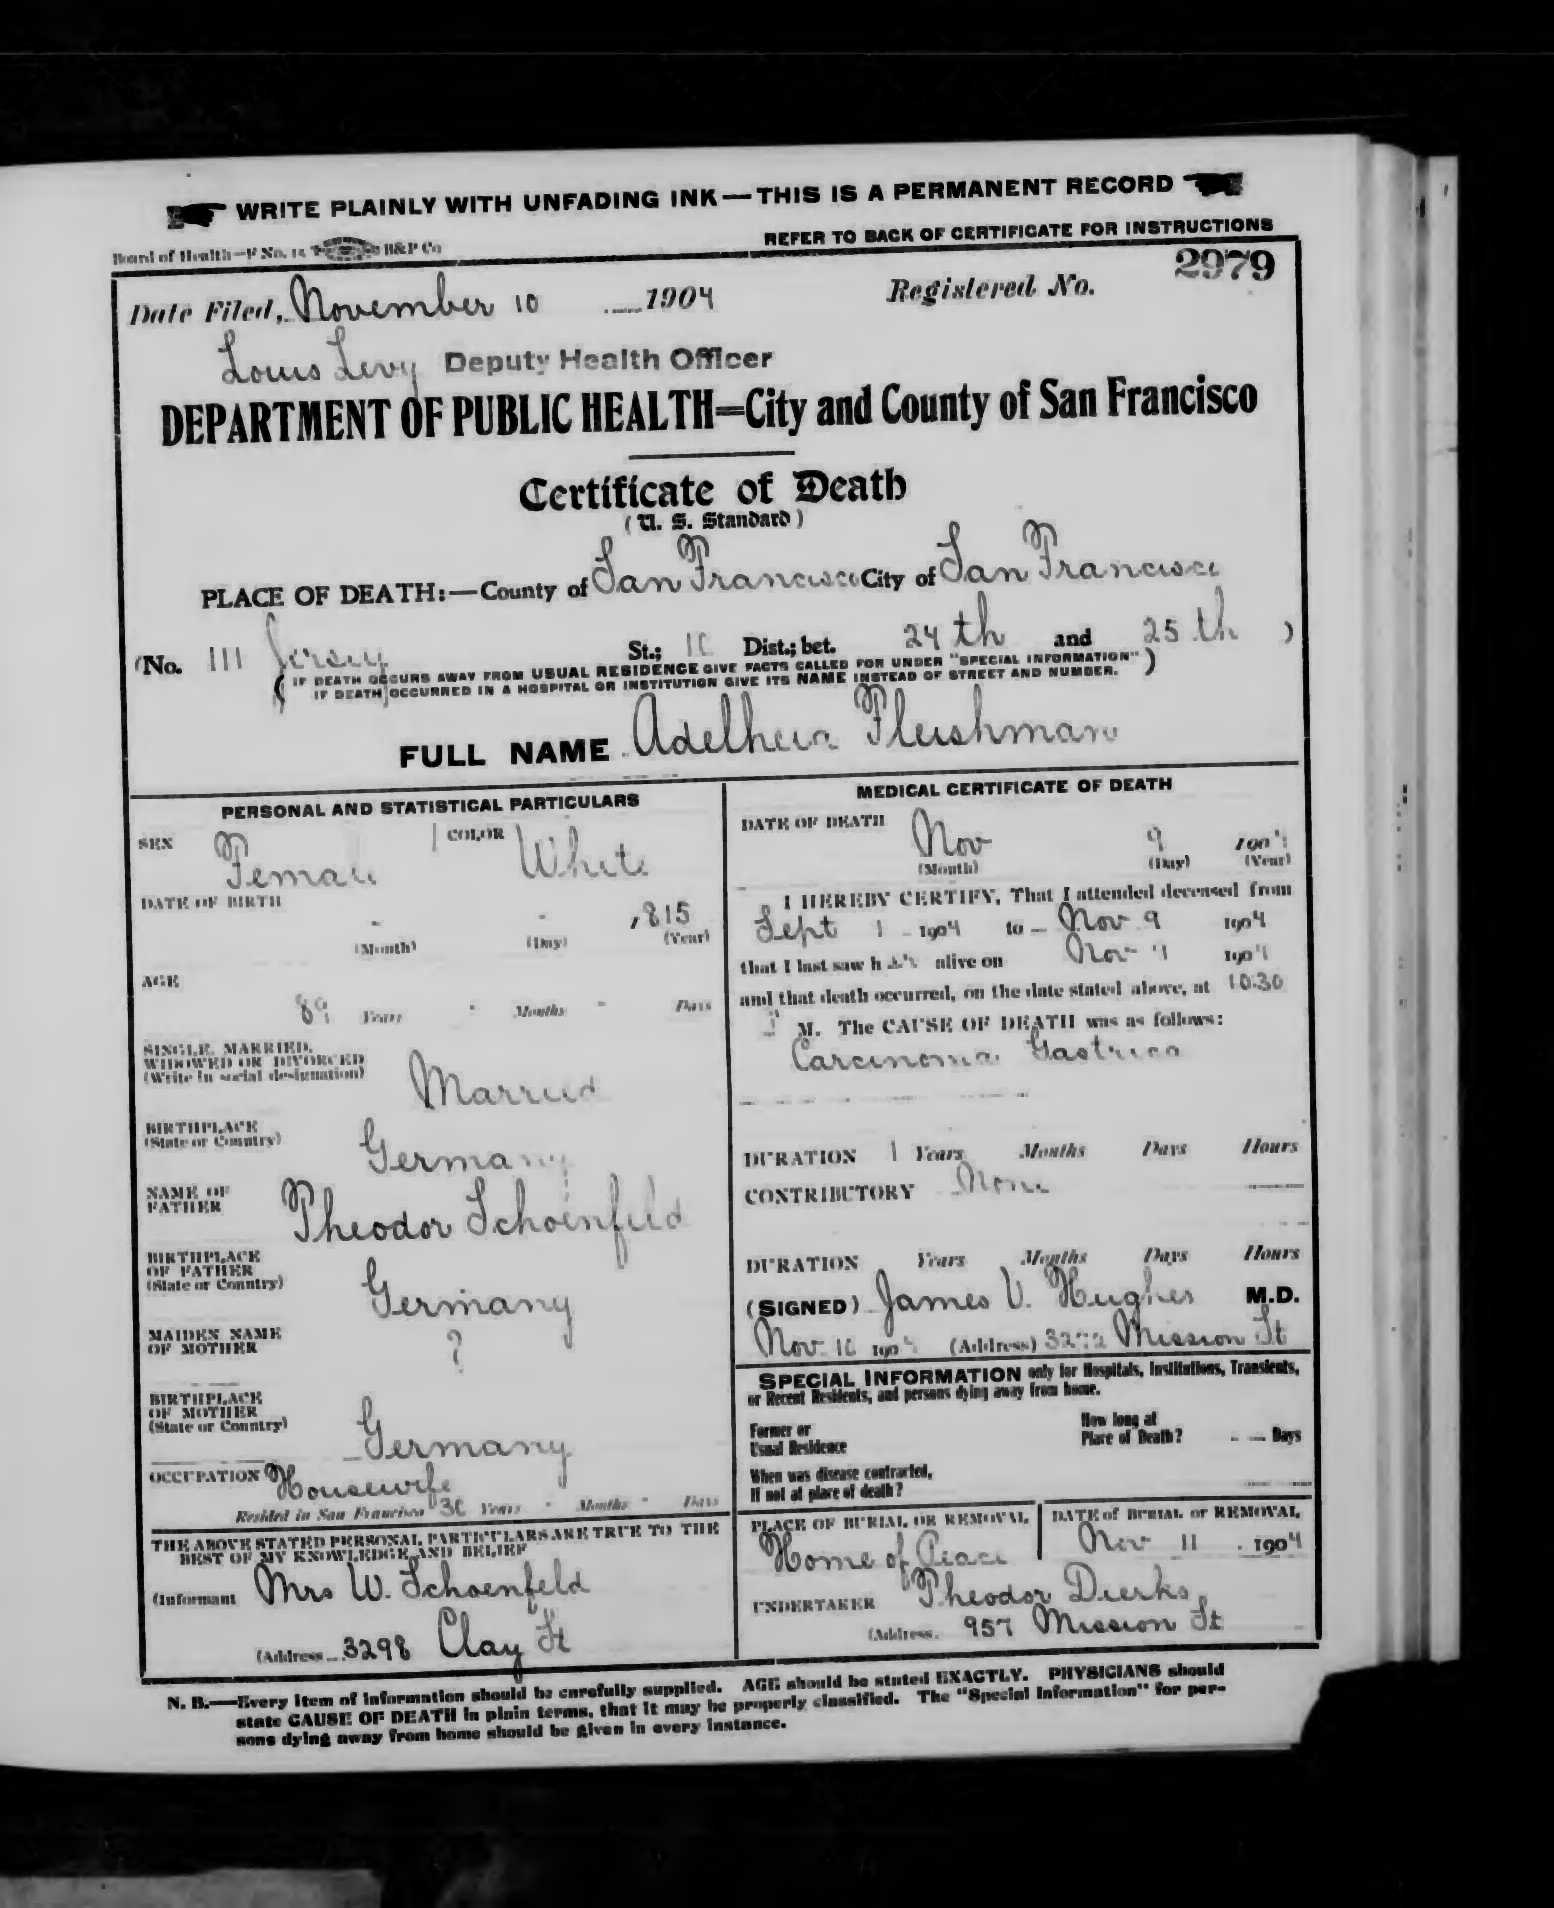 WRITE PLAINLY WITH UNFADING INK—THIS IS A PERMANENT RECORD
Board of Health—F No. 15 B&P Co
REFER TO BACK OF CERTIFICATE FOR INSTRUCTIONS
Date Filed, November 10 1904 Registered No. 2979
Louis Levy Deputy Health Officer
DEPARTMENT OF PUBLIC HEALTH=City and County of San Francisco
Certificate of Death
(U. S. Standard)
PLACE OF DEATH:—County of San Francisco City of San Francisco
(No. 111 Jersey St.; Dist.; bet. 24th and 25th )
( IF DEATH OCCURS AWAY FROM USUAL RESIDENCE GIVE FACTS CALLED FOR UNDER "SPECIAL INFORMATION" )
IF DEATH OCCURRED IN A HOSPITAL OR INSTITUTION GIVE ITS NAME INSTEAD OF STREET AND NUMBER.
FULL NAME Fleishman
PERSONAL AND STATISTICAL PARTICULARS
SEX Female COLOR White
DATE OF BIRTH
- - 1815
(Month) (Day) (Year)
AGE
89 Years - Months - Days
SINGLE, MARRIED,
WIDOWED OR DIVORCED
(Write in social designation)
Married
BIRTHPLACE
(State or Country)
Germany
NAME OF
FATHER
Theodor Schoenfeld
BIRTHPLACE
OF FATHER
(State or Country)
Germany
MAIDEN NAME
OF MOTHER
?
BIRTHPLACE
OF MOTHER
(State or Country)
Germany
OCCUPATION Housewife
Resided in San Francisco 30 Years - Months - Days
THE ABOVE STATED PERSONAL PARTICULARS ARE TRUE TO THE
BEST OF MY KNOWLEDGE AND BELIEF
(Informant Mrs W. Schoenfeld
(Address 3298 Clay St
MEDICAL CERTIFICATE OF DEATH
DATE OF DEATH Nov 9 1904
(Month) (Day) (Year)
I HEREBY CERTIFY, That I attended deceased from
Sept 1 - 1904 to — Nov 9 1904
that I last saw her alive on Nov 9 1904
and that death occurred, on the date stated above, at 10.30
M. The CAUSE OF DEATH was as follows:
Carcinoma Gastrica
DURATION 1 Years Months Days Hours
CONTRIBUTORY None
DURATION Years Months Days Hours
(SIGNED) James V. Hughes M.D.
Nov 10 1904 (Address) 3272 Mission St
SPECIAL INFORMATION only for Hospitals, Institutions, Transients,
or Recent Residents, and persons dying away from home.
Former or
Usual Residence
How long at
Place of Death? Days
When was disease contracted,
If not at place of death?
PLACE OF BURIAL OR REMOVAL
Home of Peace
DATE of BURIAL or REMOVAL
Nov 11 1904
UNDERTAKER Theodor Dierks
(Address 957 Mission St
N. B.—Every item of information should be carefully supplied. AGE should be stated EXACTLY. PHYSICIANS should
state CAUSE OF DEATH in plain terms, that it may be properly classified. The "Special Information" for per-
sons dying away from home should be given in every instance.